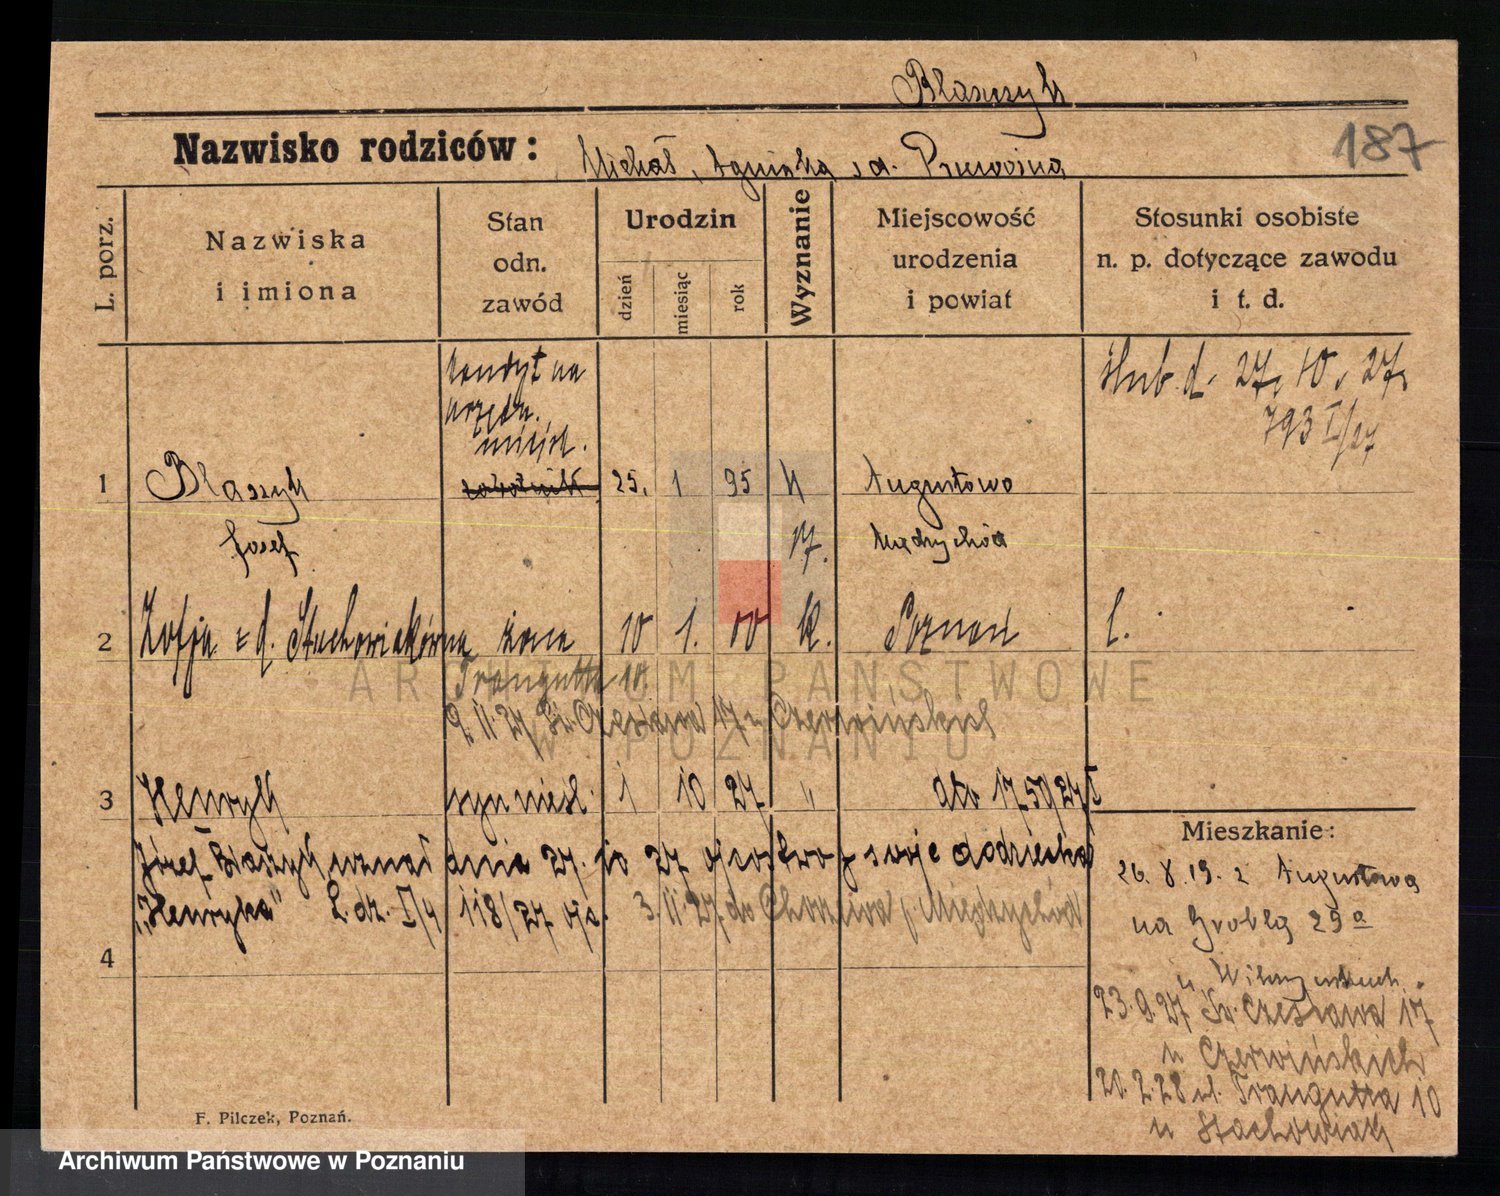 Błaszczyk
187
Nazwisko rodziców: Michał, Agnieszka
L. porz.
Nazwiska
i imiona
Stan
odn.
zawód
Urodzin
dzień
miesiąc
rok
Wyznanie
Miejscowość
urodzenia
i powiat
Stosunki osobiste
n. p. dotyczące zawodu
i t. d.
kandyt na
urzędn.
miejsk.
ślub d. 27. 10. 27.
793 I/27
1 Błaszyk robotnik 25. 1 95 k Augustowo
Josef Międzychód
2 Zofja z d. Stachowiakówna żona 10 1. 00 k. Poznań
Traugutta 10.
2.11.27 Św. Czesława 17 u Czerwińskich
3 Henryk syn nieśl. 1 10 27 " 1759/27 I
Józef Błaszyk uznał dnia 27. 10 27 ojcostwo swoje do dziecka
"Henryka" L. dz. I/4 118/27 3.11.27 do Międzychód
4
Mieszkanie:
26.8.19. z Augustowa
na Groblą 25a
u
23.9.27 Św. Czesława 17
u Czerwińskich
21.2.28 ul. Traugutta 10
u Stachowiak
F. Pilczek, Poznań.
ARCHIWUM PAŃSTWOWE
W POZNANIU
Archiwum Państwowe w Poznaniu